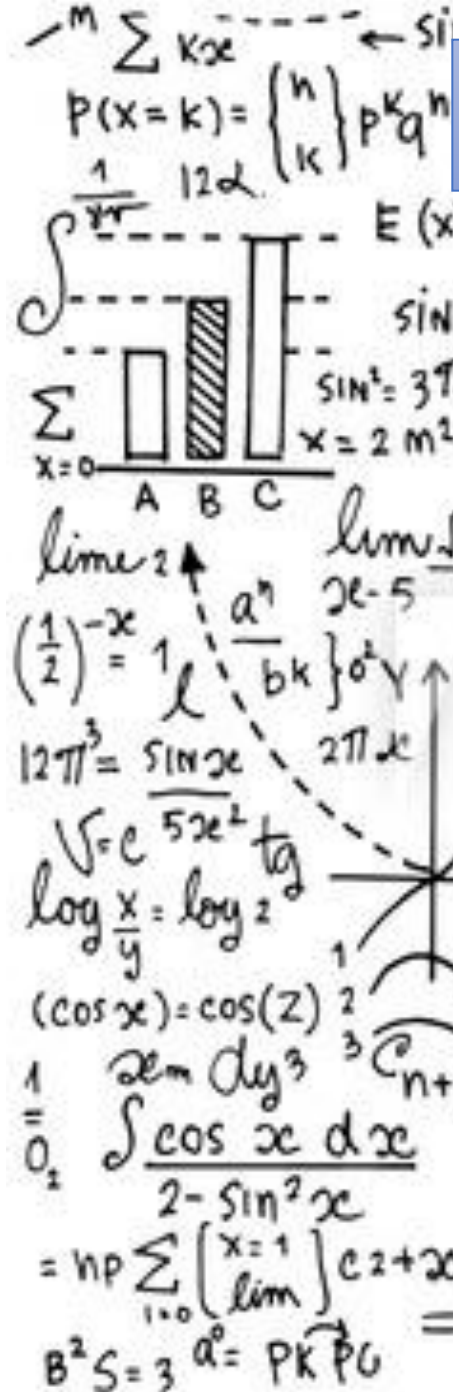 m ∑ kx ← si
P(x=k) = {n k} p^k q^n
1 12α
∫ E (x
sin
∑ sin² = 3π
x=0 x = 2 m²
A B C
lime 2 lim
a^n x-5
(1/2)^-x = 1 bk } 0²
l
12π³ = sin x / 5x² 2πx
V=c tg
log x/y = log 2
1
(cos x) = cos(2) 2
xm dy3 3 Cn+
1 = 0₂ ∫ cos x dx / 2 - sin² x
= np ∑ i=0 (x=1 lim) c2+x
B²S=3 a⁰= PK PC